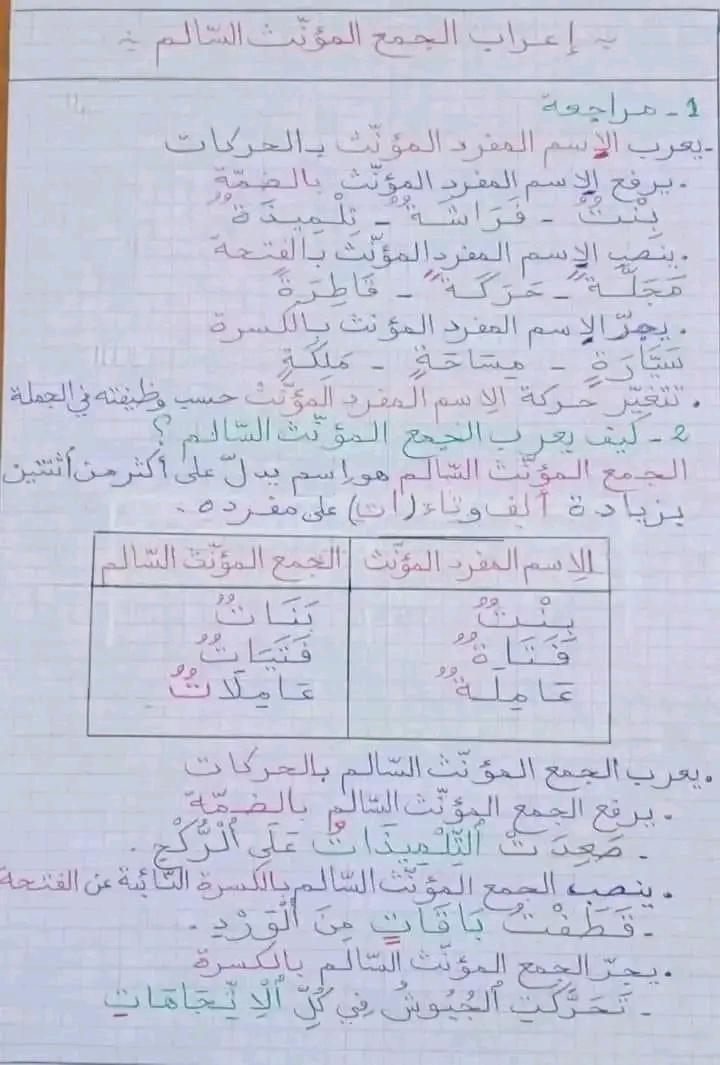 إعراب الجمع المؤنّث السّالم
1 - مراجعة
- يعرب الإسم المفرد المؤنّث بالحركات
. يرفع الإسم المفرد المؤنّث بالضمّة
بِنْتٌ - فَرَاشَةٌ - تِلْمِيذَةٌ
. ينصب الإسم المفرد المؤنّث بالفتحة
مَجَلَّةً - حَرَكَةً - قَاطِرَةً
. يجرّ الإسم المفرد المؤنث بالكسرة
سَيَّارَةٍ - مِسَاحَةٍ - مَلِكَةٍ
. تتغيّر حركة الإسم المفرد المؤنّث حسب وظيفته في الجملة
2 - كيف يعرب الجمع المؤنّث السّالم ؟
الجمع المؤنّث السّالم هو إسم يدلّ على أكثر من أثنتين
بزيادة ألف وتاء (ات) على مفرده .
الإسم المفرد المؤنّث | الجمع المؤنّث السّالم
بِنْتٌ | بَنَاتٌ
فَتَاةٌ | فَتَيَاتٌ
عَامِلَةٌ | عَامِلَاتٌ
. يعرب الجمع المؤنّث السّالم بالحركات
. يرفع الجمع المؤنّث السّالم بالضمّة
- صَعِدَتْ اُلتِّلْمِيذَاتُ عَلَى اُلْرُّكْحِ .
. ينصب الجمع المؤنّث السّالم بالكسرة النّائبة عن الفتحة
- قَطَفْتُ بَاقَاتٍ مِنَ اُلْوَرْدِ .
. يجرّ الجمع المؤنّث السّالم بالكسرة
- تَحَرَّكَتِ اُلْجُيُوشُ فِي كُلِّ اُلْاِتِّجَاهَاتِ